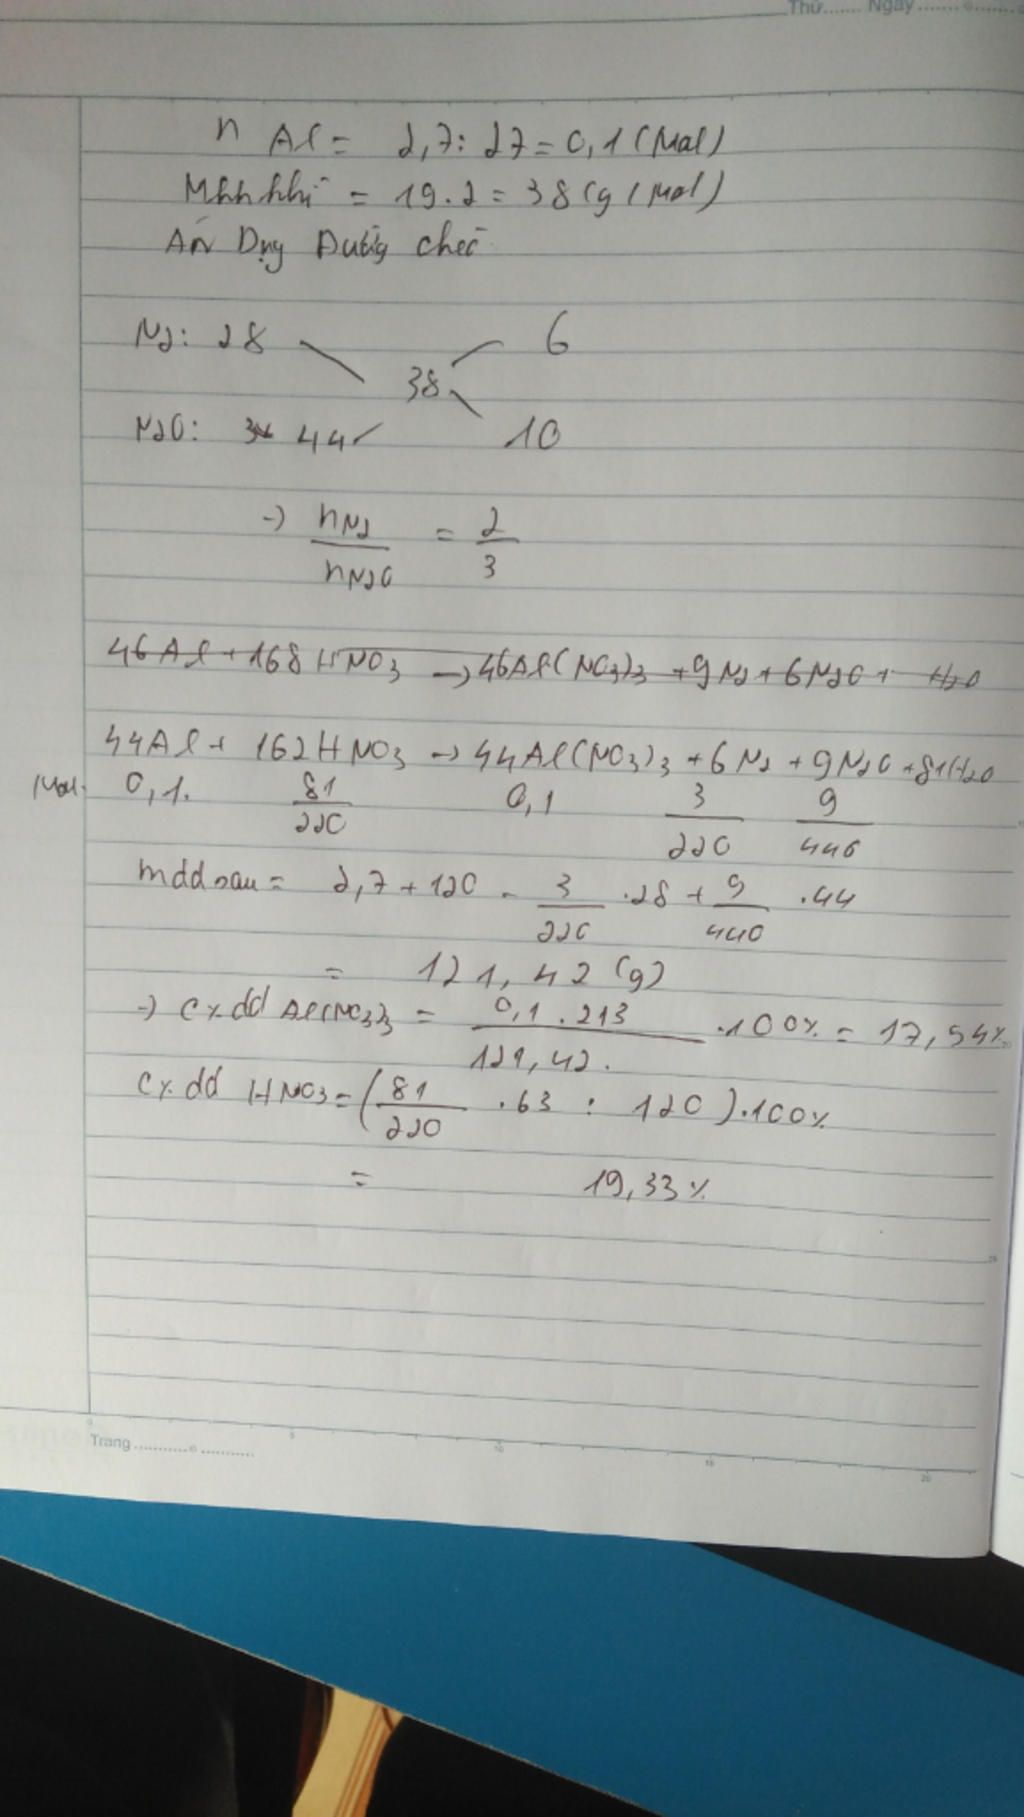 Thứ....... Ngày.......
n Al = 2,7 : 27 = 0,1 (Mol)
Mhh khí = 19.2 = 38 (g/Mol)
Áp Dụng Đường chéo
N2: 28 6
38
N2O: 44 10
-> nN2/nN2O = 2/3
46Al + 168HNO3 -> 46Al(NO3)3 + 9N2 + 6N2O + H2O
44Al + 162HNO3 -> 44Al(NO3)3 + 6N2 + 9N2O + 81H2O
Mol: 0,1. 81/220 0,1 3/220 9/440
mdd sau = 2,7 + 120 - 3/220 .28 + 9/440 .44
= 121,42 (g)
-> C% dd Al(NO3)3 = 0,1.213/121,42. .100% = 17,54%
C% dd HNO3 = (81/220 .63 : 120).100%
= 19,33%
Trang...........